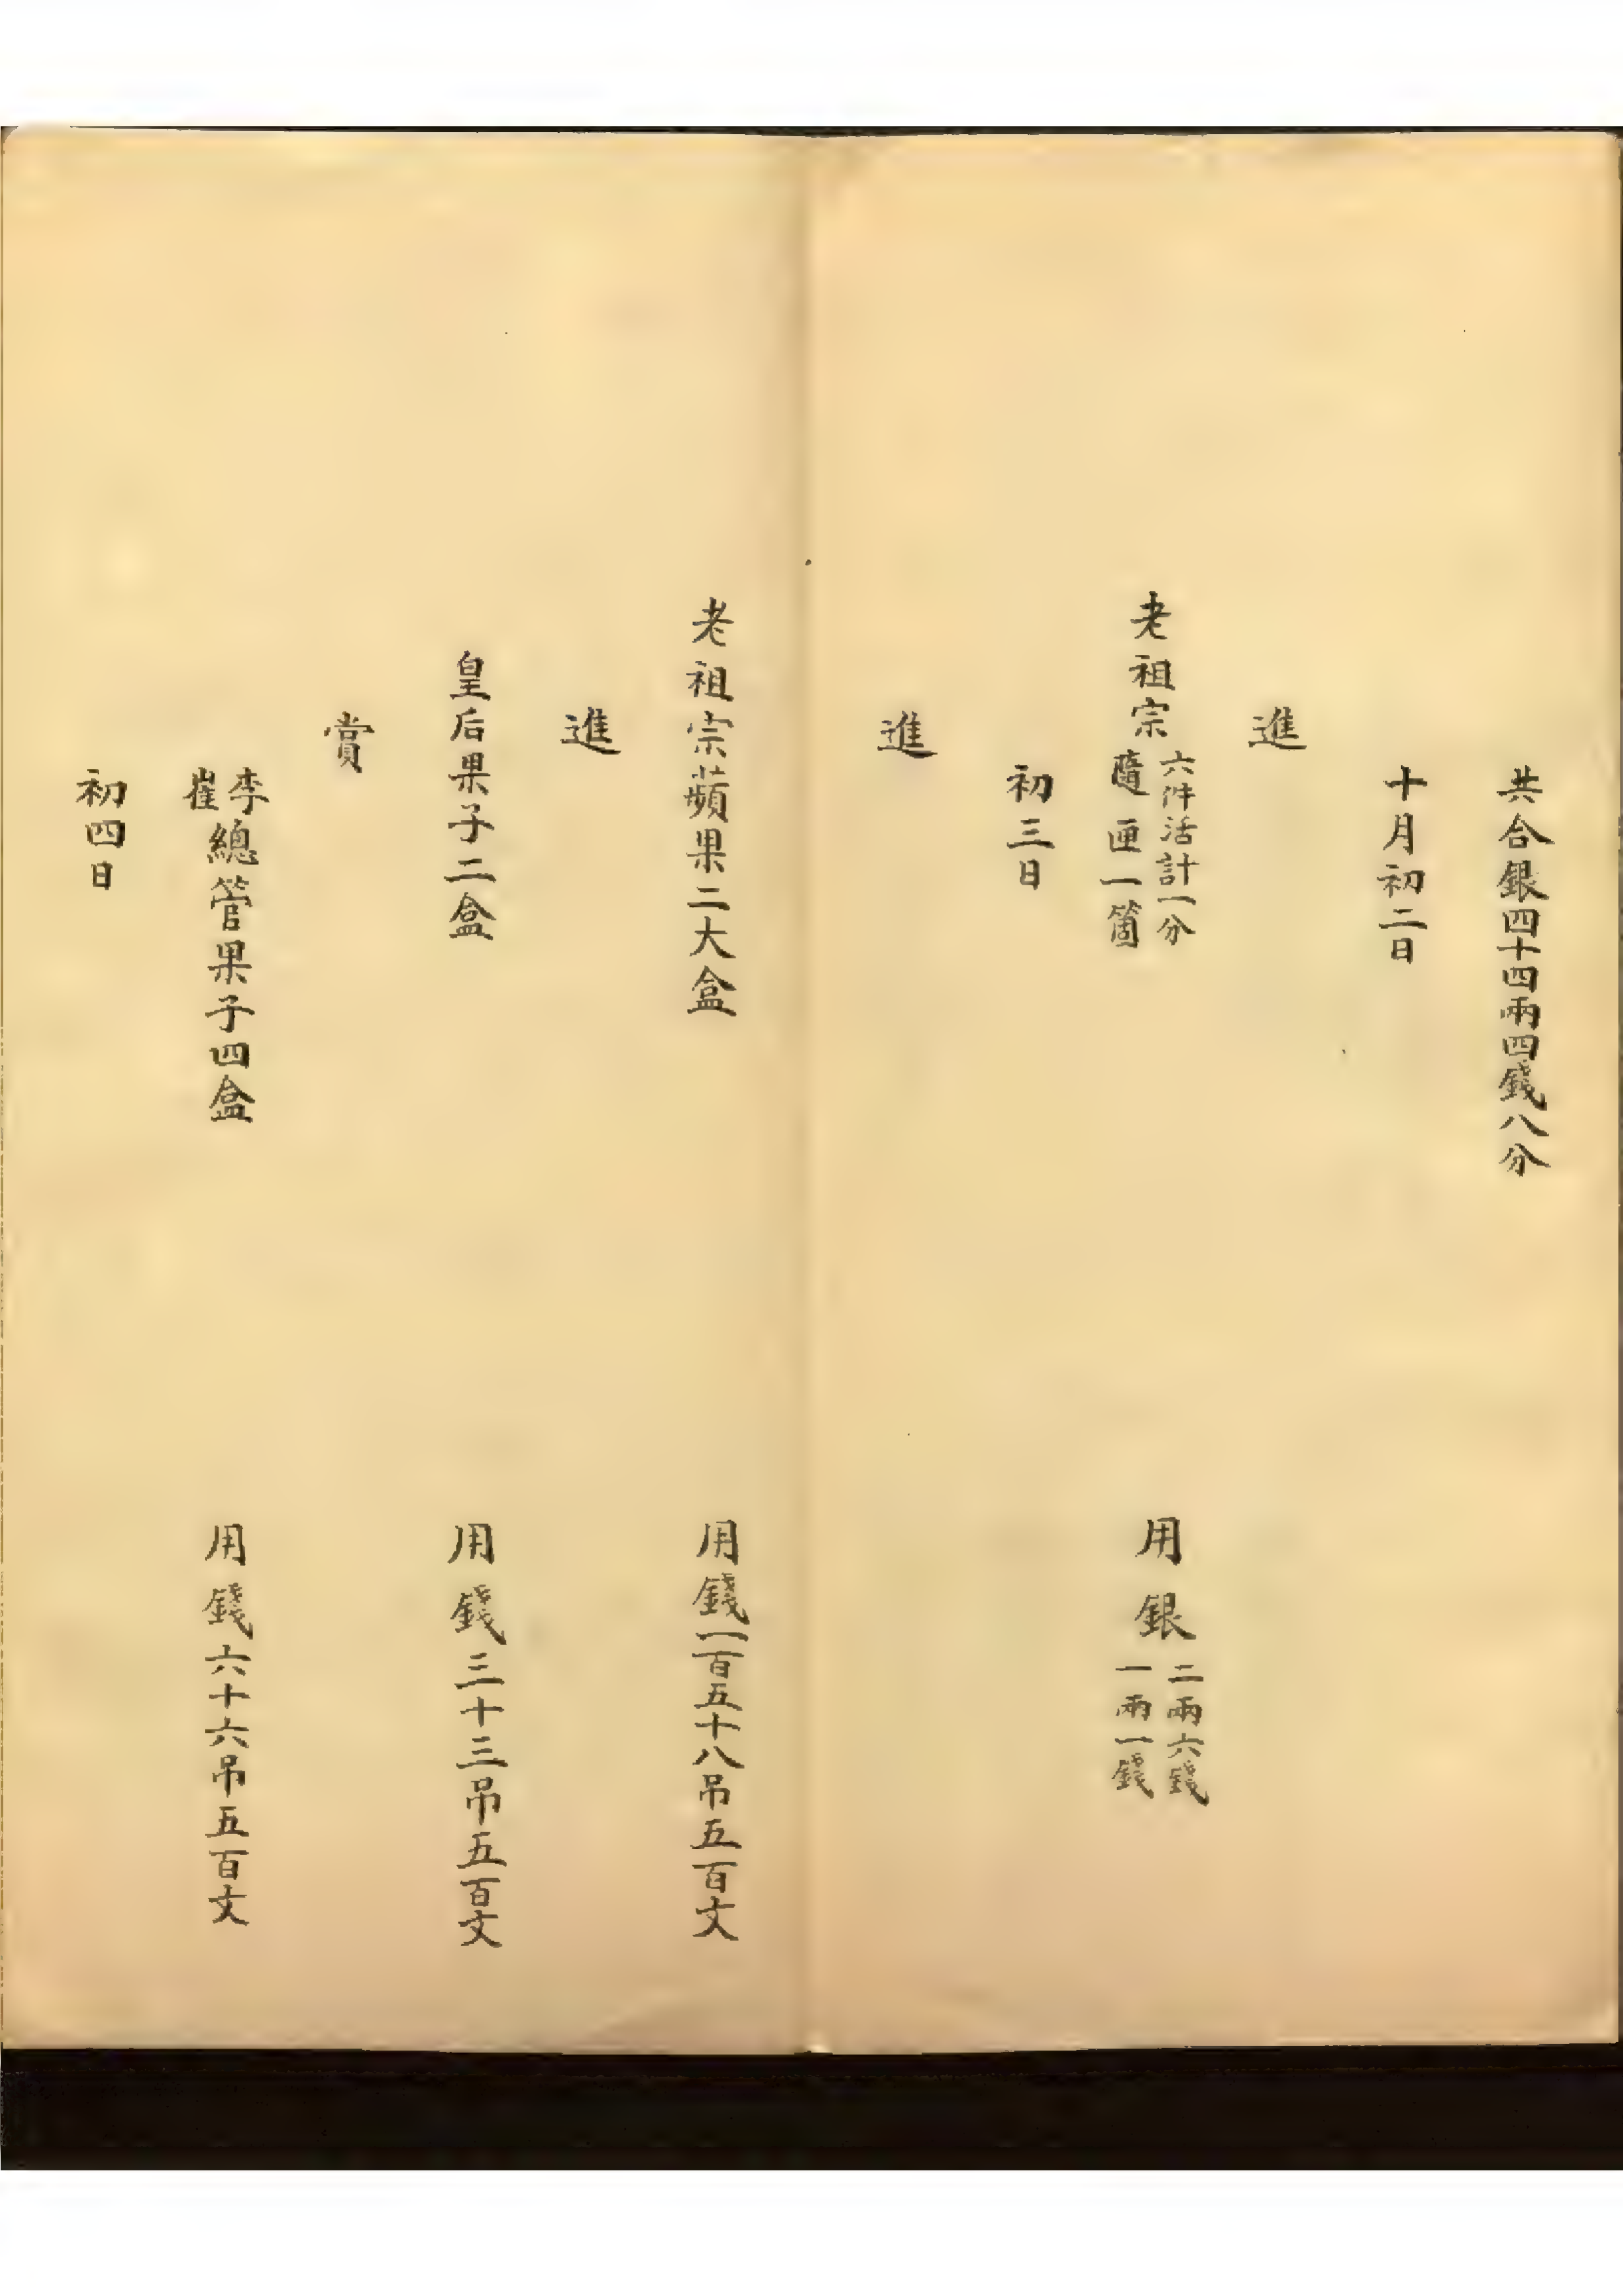 共合銀四十四兩四錢八分
十月初二日
進
老祖宗六件活計一分隨匣一箇 用銀二兩六錢一兩一錢
初三日
進
老祖宗蘋果二大盒 用錢一百五十八吊五百文
進
皇后果子二盒 用錢三十三吊五百文
賞
李崔總管果子四盒 用錢六十六吊五百文
初四日